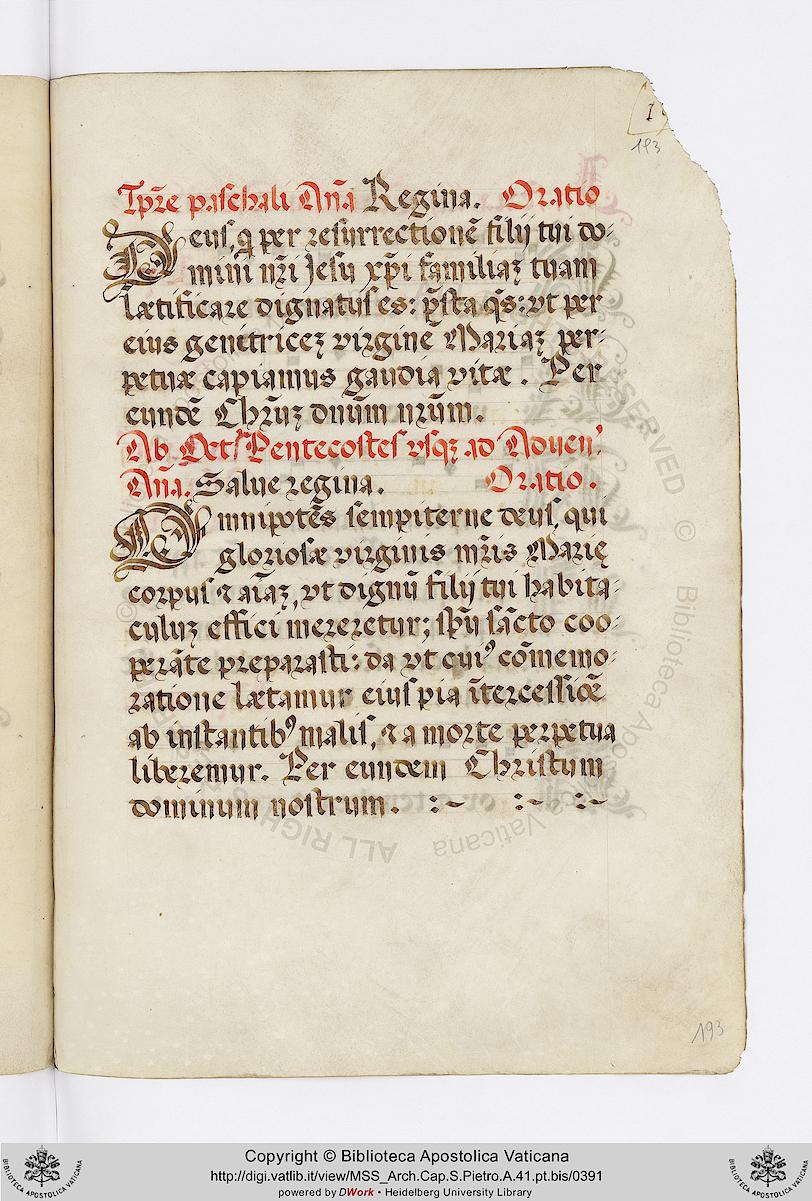 I
193
Tp̄re paschali Anā Regina. Oratio
Deus, q̄ per resurrectionē filij tui do-
mini nr̄i Jesu xp̄i familiaȝ tuam
lætificare dignatus es: p̄sta q̄s: vt per
eius genitriceȝ virginē Mariaȝ per-
petuæ capiamus gaudia vitæ. Per
eundē Chr̄uȝ dnūm nrūm.
Ab Oct. Pentecostes vsqȝ ad Aduen.
Anā. Salue regina. Oratio.
Omnipotēs sempiterne deus, qui
gloriosæ virginis mr̄is Marię
corpus ⁊ aīaȝ, vt dignū filij tui habita-
culuȝ effici mereretur; sp̄u sācto coo-
perāte preparasti: da vt cuiꝰ cōmemo-
ratione lætamur eius pia ītercessiōe
ab instantibꝰ malis, ⁊ a morte perpetua
liberemur. Per eundem Christum
dominum nostrum. :~ :~ :~
193
Copyright © Biblioteca Apostolica Vaticana
http://digi.vatlib.it/view/MSS_Arch.Cap.S.Pietro.A.41.pt.bis/0391
powered by DWork • Heidelberg University Library